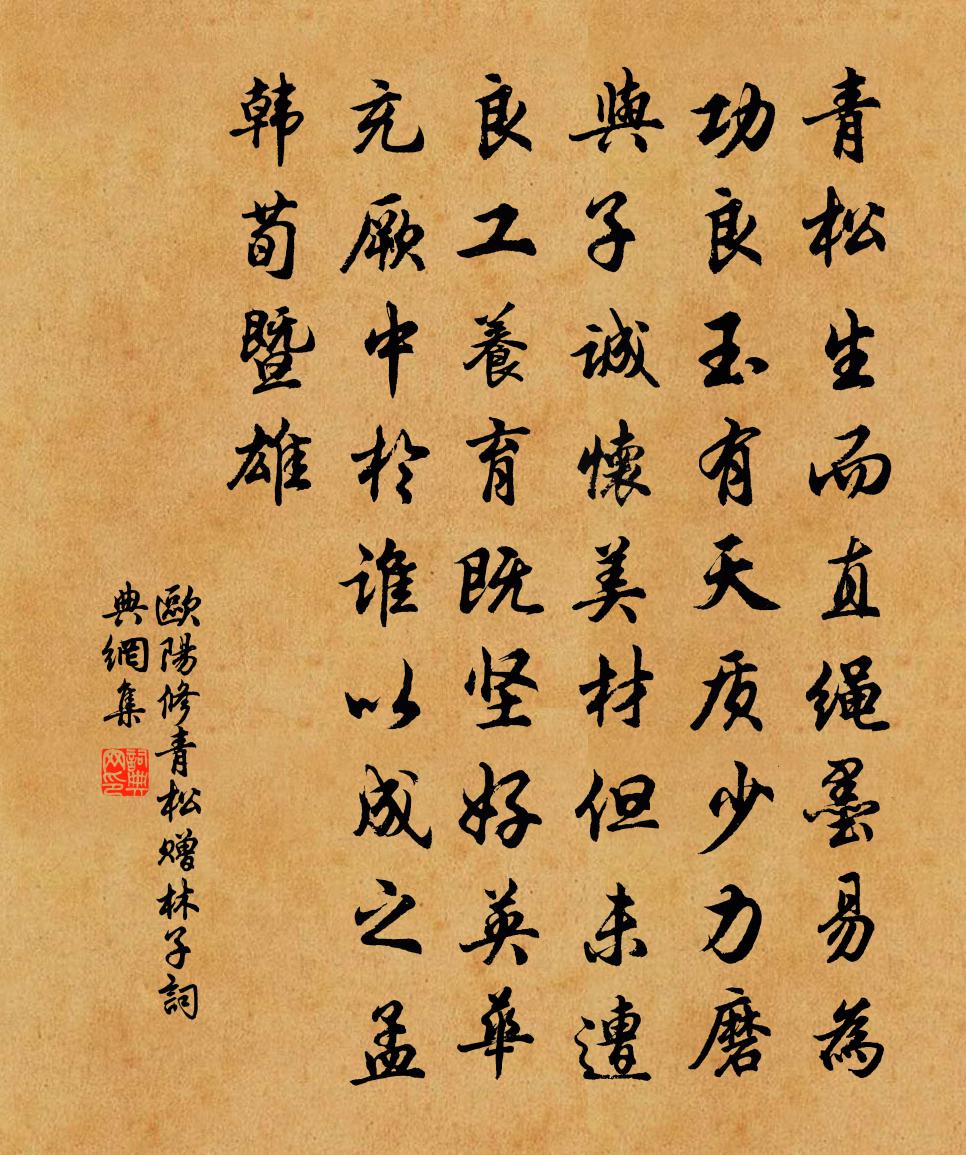 青松生而直绳墨易為
功良玉有天质少力磨
與子誠懷美材但未遭
良工養育既坚好英華
充厥中於谁以成之孟
韩荀暨雄
歐陽修青松赠林子詞
典網集
詞典网印